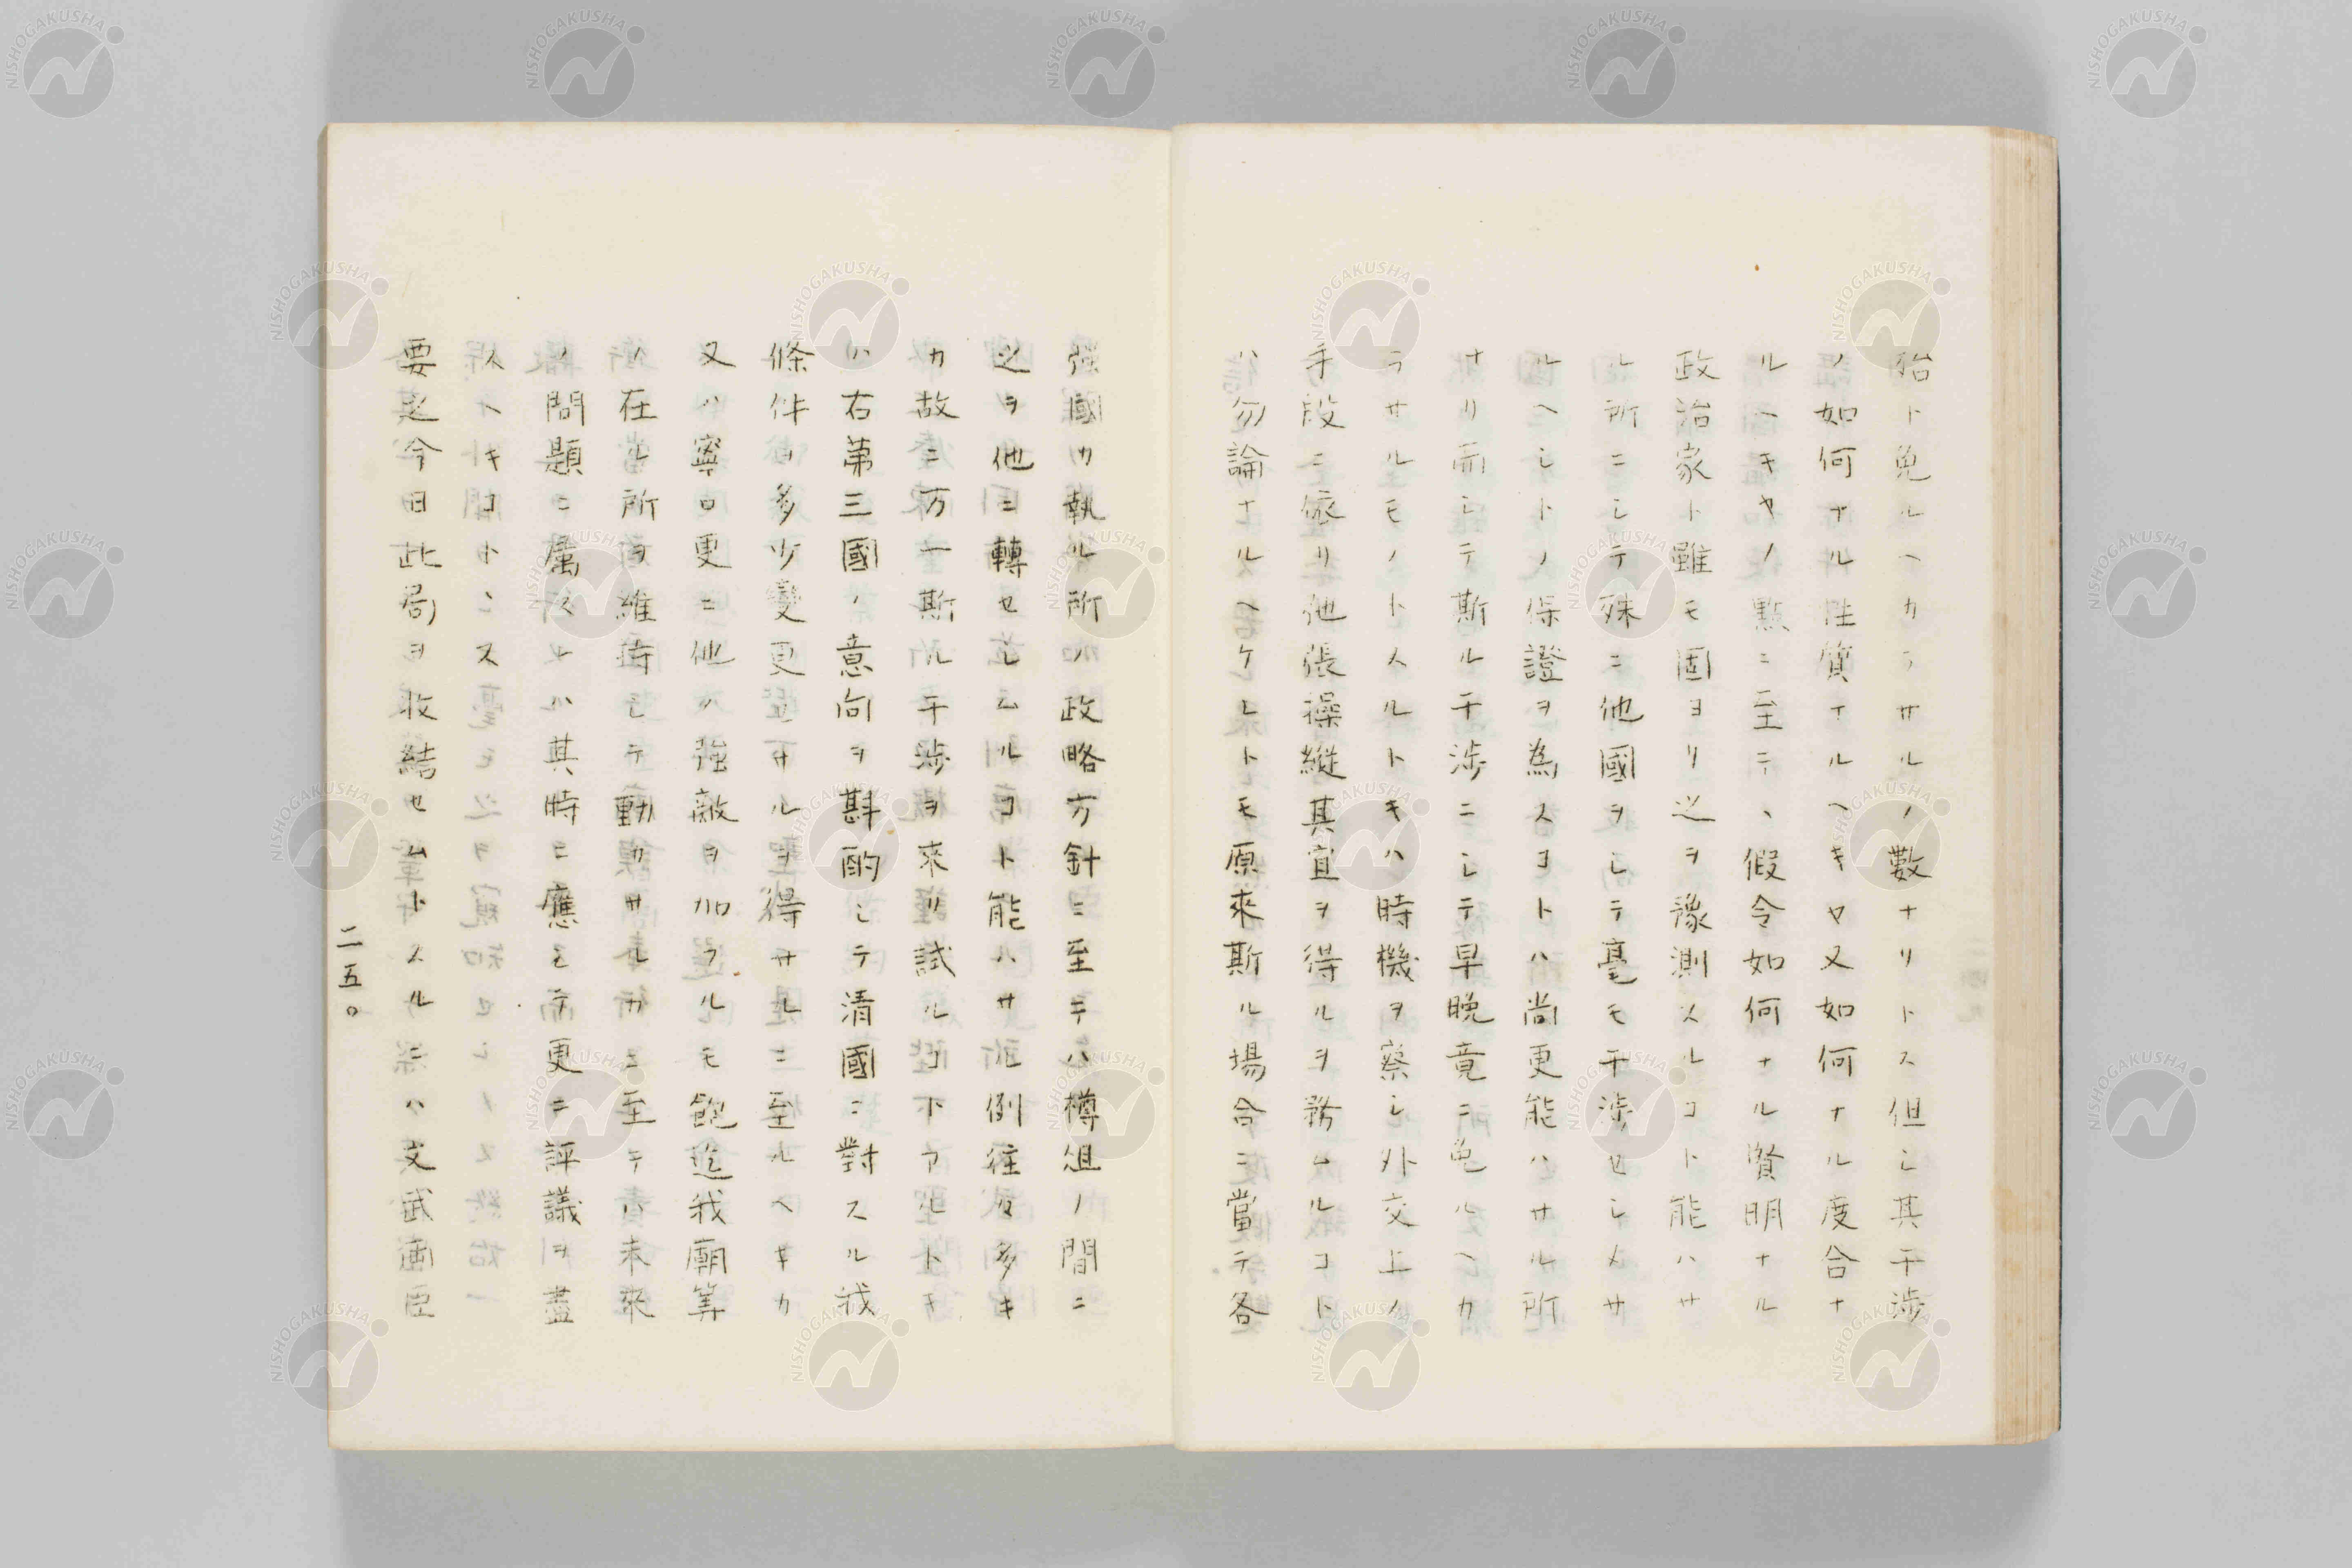 殆ト免ルヘカラサルノ數ナリトス但シ其干渉
ノ如何ナル性質ナルヘキヤ又如何ナル度合ナ
ルヘキヤノ點ニ至テハ假令如何ナル賢明ナル
政治家ト雖モ固ヨリ之ヲ豫測スルコト能ハサ
ル所ニシテ殊ニ他國ヲシテ毫モ干渉セシメサ
ルヘシトノ保證ヲ為スコトハ尚更能ハサル所
ナリ而シテ斯ル干渉ニシテ早晩竟ニ免ルヘカ
ラサルモノトスルトキハ時機ヲ察シ外交上ノ
手段ニ依リ弛張操縦其宜ヲ得ルヲ務ムルコト
ハ勿論ナルヘケレトモ原來斯ル場合ニ當テ各
强國カ執ル所ノ政略方針ニ至テハ樽俎ノ間ニ
之ヲ他ニ轉セシムルコト能ハサル例往々多キ
カ故ニ万一斯ル干渉ヲ來リ試ルコトアルトキ
ハ右第三國ノ意向ヲ斟酌シテ清國ニ對スル我
條件ヲ多少變更セサルヲ得サルニ至ルヘキカ
又ハ寧ロ更ニ他ノ強敵ヲ加フルモ飽迄我廟筭
ノ在ル所ヲ維持シテ動カサルカニ至テハ未來
ノ問題ニ属スレハ其時ニ應シテ更ニ評議ヲ盡
スヘキコトヽス
要之今日此局ヲ收結セムトスルニハ文武両臣
二五〇
NISHOGAKUSHA